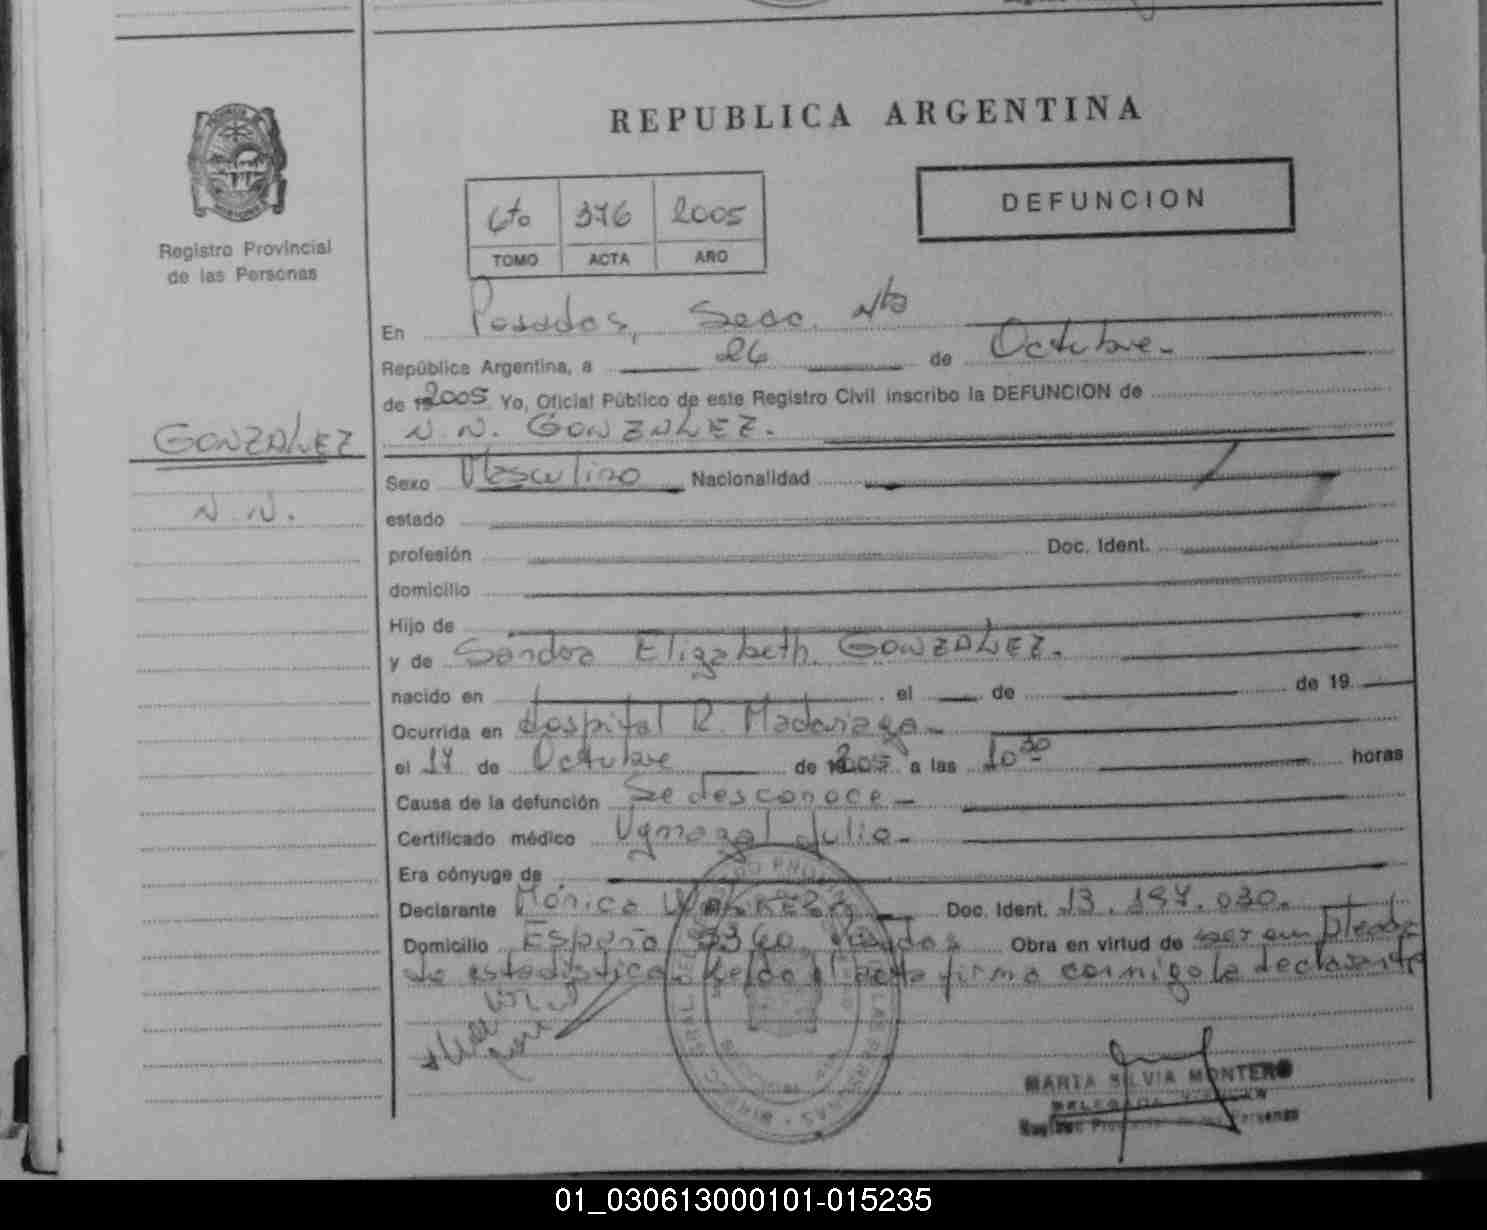 REPUBLICA ARGENTINA
Registro Provincial
de las Personas
6to 376 2005
TOMO ACTA AÑO
DEFUNCION
En Posadas, Secc.
República Argentina, a 26 de Octubre.
de 2005 Yo, Oficial Público de este Registro Civil inscribo la DEFUNCION de
N.N. GONZALEZ.
GONZALEZ
N.N.
Sexo Masculino Nacionalidad
estado
profesión Doc. Ident.
domicilio
Hijo de
y de Sandra Elizabeth GONZALEZ.
nacido en el de de 19
Ocurrida en Hospital R. Madariaga
el 17 de Octubre de 2005 a las 10 30 horas
Causa de la defunción Se desconoce
Certificado médico Julio
Era cónyuge de
Declarante Mónica Doc. Ident. 13.197.030.
Domicilio España Posadas Obra en virtud de ser empleada
de estadística Leída el acta firma conmigo la declarante
MARTA SILVIA MONTERO
DELEGADA
Registro Provincial de las Personas
01_030613000101-015235